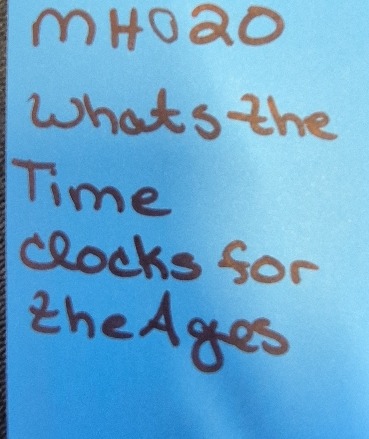 MH020
Whats the
Time
Clocks for
the Ages